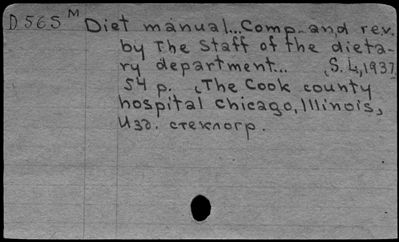 D 565 M Diet manual... Comp. and rev.
by The Staff of the dieta-
ry department... [S. L., 1937]
54 p. (The Cook county
hospital Chicago, Illinois,
Изд. стеклогр.